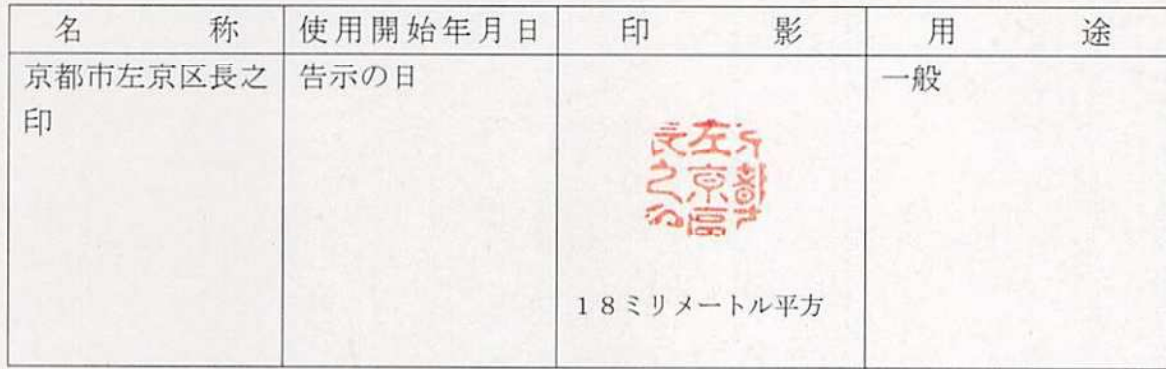 名称 使用開始年月日 印影 用途
京都市左京区長之 告示の日 一般
印
京都市
左京區
長之印
18ミリメートル平方